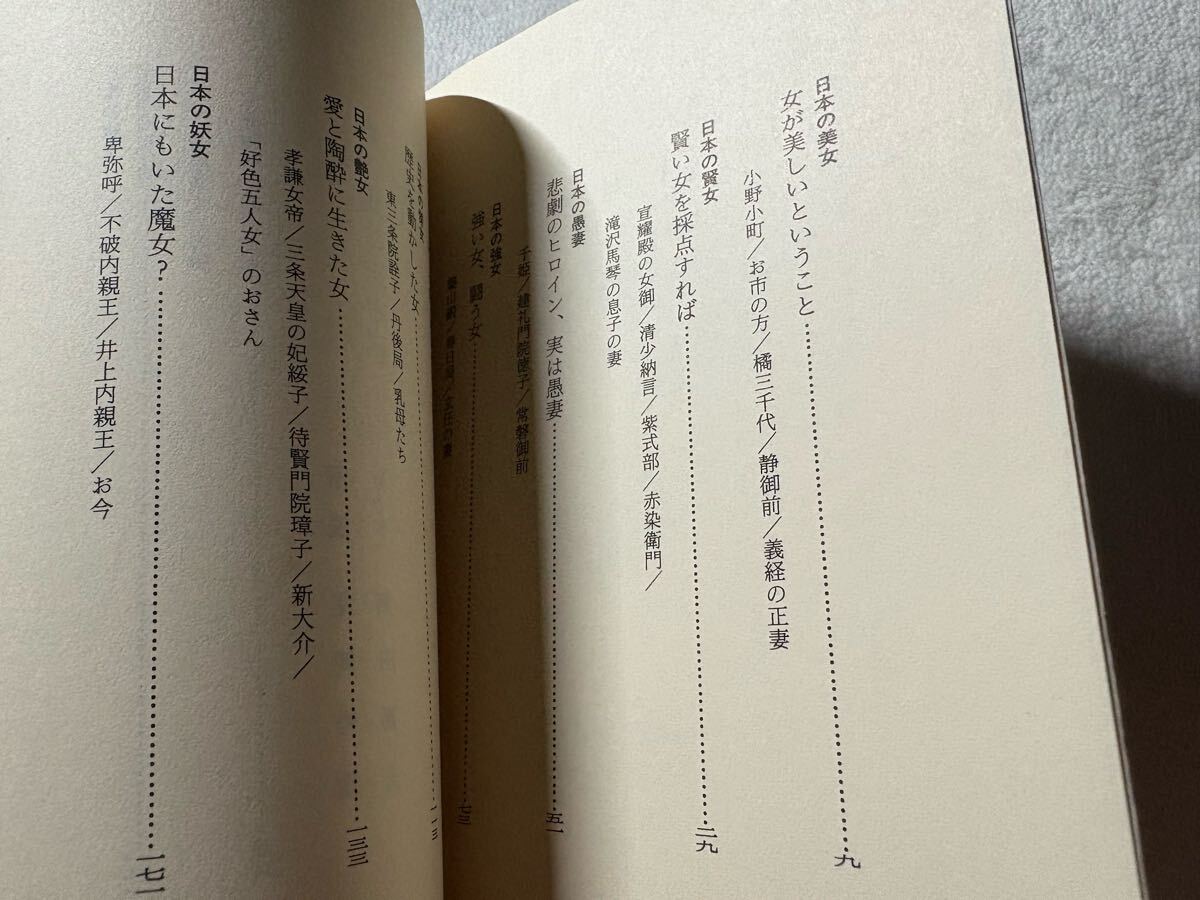 日本の美女
女が美しいということ……………………九
小野小町／お市の方／橘三千代／静御前／義経の正妻
日本の賢女
賢い女を採点すれば……………………二九
宣耀殿の女御／清少納言／紫式部／赤染衛門／
滝沢馬琴の息子の妻
日本の愚妻
悲劇のヒロイン、実は愚妻……………………五一
千姫／建礼門院徳子／常磐御前
日本の強女
強い女、闘う女……………………七三
日本の
歴史を動かした女……………………一一三
東三条院詮子／丹後局／乳母たち
日本の艶女
愛と陶酔に生きた女……………………一三三
孝謙女帝／三条天皇の妃綏子／待賢門院璋子／新大介／
「好色五人女」のおさん
日本の妖女
日本にもいた魔女？……………………一七一
卑弥呼／不破内親王／井上内親王／お今